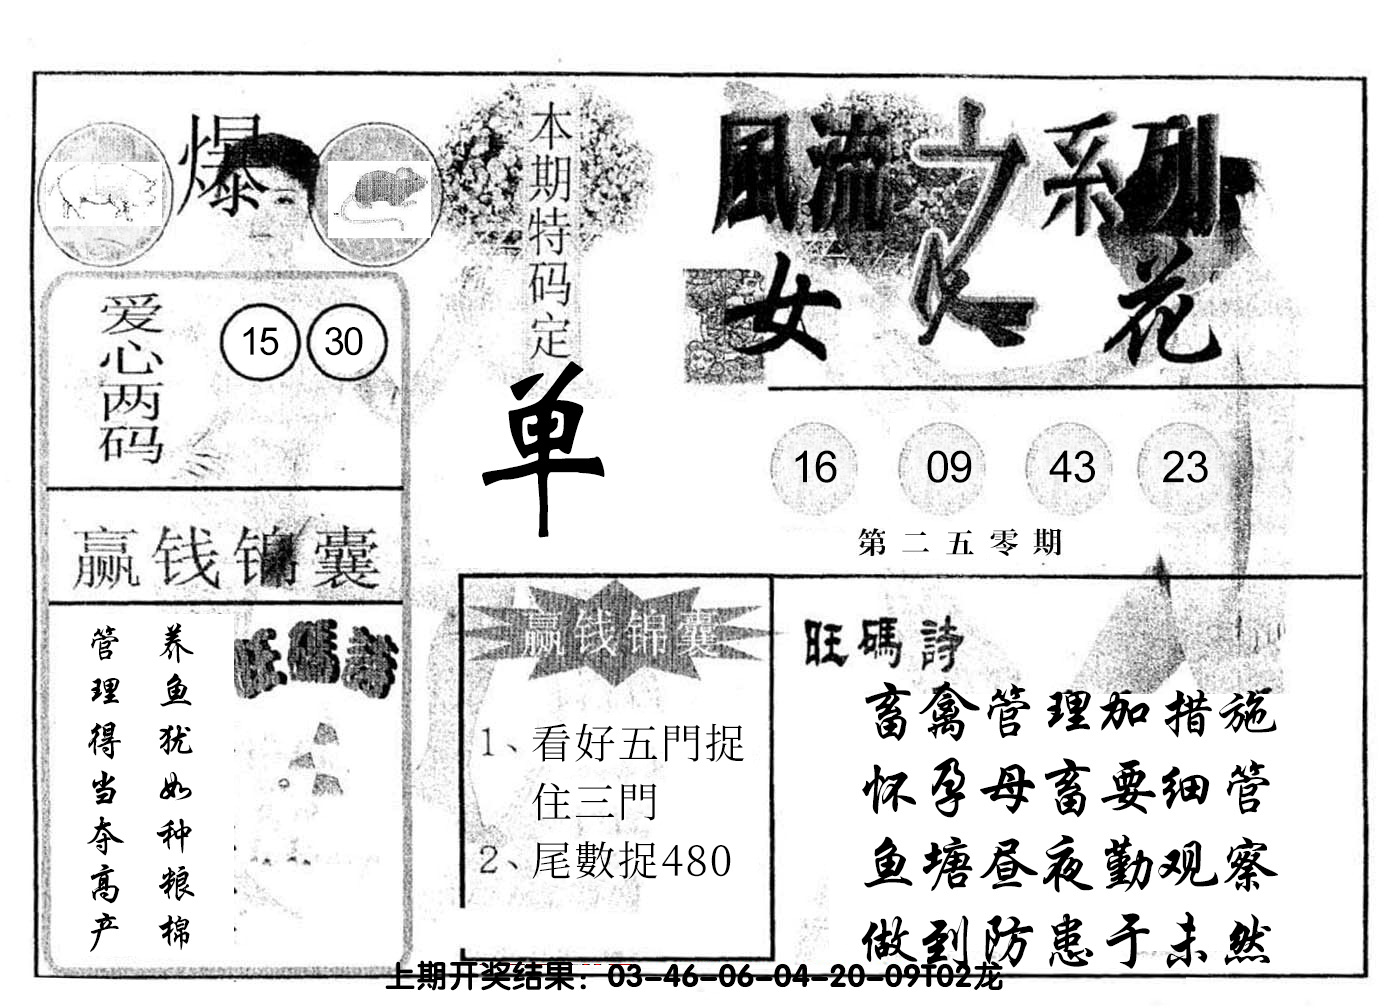 爆
本期特码定
单
風流之系列
女人花
爱心两码
15 30
16 09 43 23
第二五零期
赢钱锦囊
养鱼犹如种粮棉
管理得当夺高产
旺碼詩
赢钱锦囊
1、看好五門捉
住三門
2、尾數捉480
旺碼詩
畜禽管理加措施
怀孕母畜要细管
鱼塘昼夜勤观察
做到防患于未然
上期开奖结果：03-46-06-04-20-09T02龙